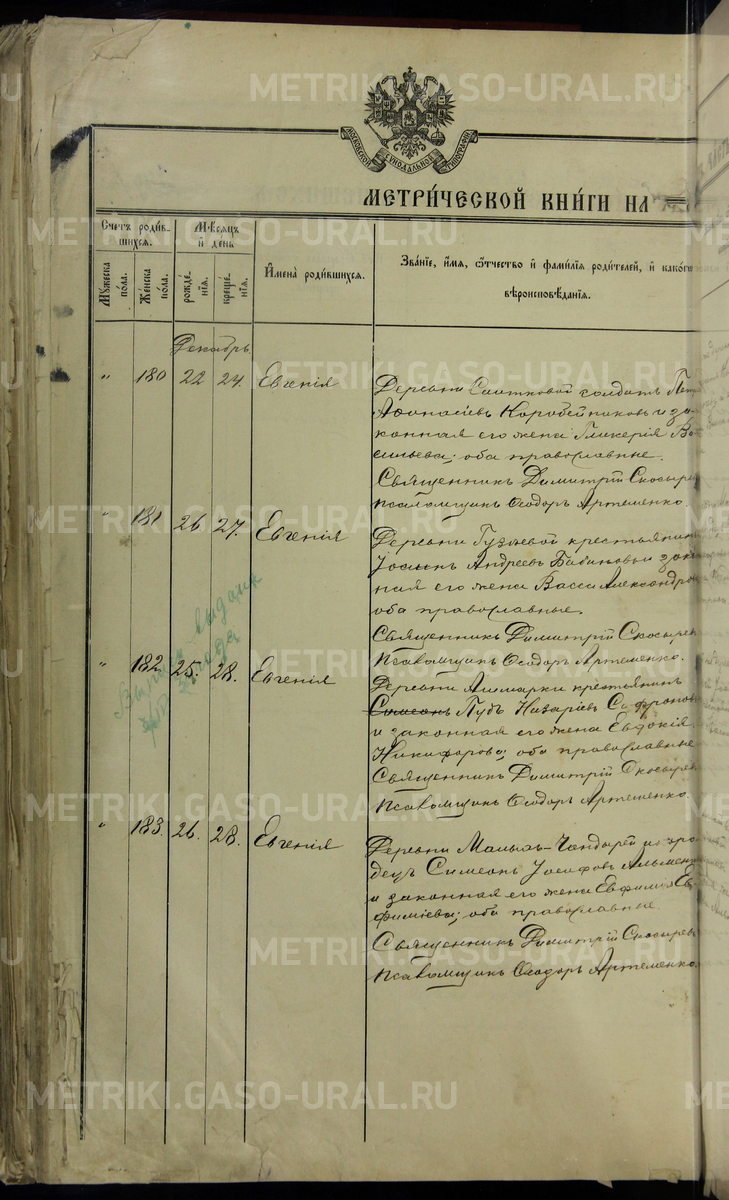 METRIKI.GASO-URAL.RU
МОСКОВСКОЙ СѴНОДАЛЬНОЙ ТИПОГРАФІИ
МЕТРИ́ЧЕСКОЙ КНИ́ГИ НА
Счетъ роди́в-
шихся.
Мѣ́сяцъ
и день
Мꙋ́жеска
по́ла.
Же́нска
по́ла.
рожде́-
нїя.
креще́-
нїя.
И҆мена̀ роди́вшихся.
Зва́нїе, и҆́мя, ѻ҆́тчество и҆ фами́лїя роди́телей, и҆ како́гѡ
вѣроисповѣ́данїя.
Декабрь
" 180 22 24. Евгенія
Деревни солдатъ
Аѳонасіевъ Коробейниковъ и за-
конная его жена Гликерія Ва-
сильева; оба православные.
Священникъ Димитрій Скосырев
Псаломщикъ Ѳеодоръ Артеменко.
" 181 26. 27. Евгенія
Деревни крестьянин
Іоаннъ Андреевъ Бабиновъ и закон
ная его жена Васса Александров
оба православные.
Священникъ Димитрій Скосырев
Псаломщикъ Ѳеодоръ Артеменко.
" 182 25. 28. Евгенія
выдана
года
Деревни крестьянинъ
Симеонъ Пудъ Назаріевъ Сафронов
и законная его жена Евдокія
Никифорова; оба православные
Священникъ Димитрій Скосырев
Псаломщикъ Ѳеодоръ Артеменко.
" 183. 26. 28. Евгенія
Деревни инаро-
децъ Симеонъ Іосифовъ
и законная его жена Евфимія Ев
фиміева; оба православные.
Священникъ Димитрій Скосыревъ
Псаломщикъ Ѳеодоръ Артеменко.